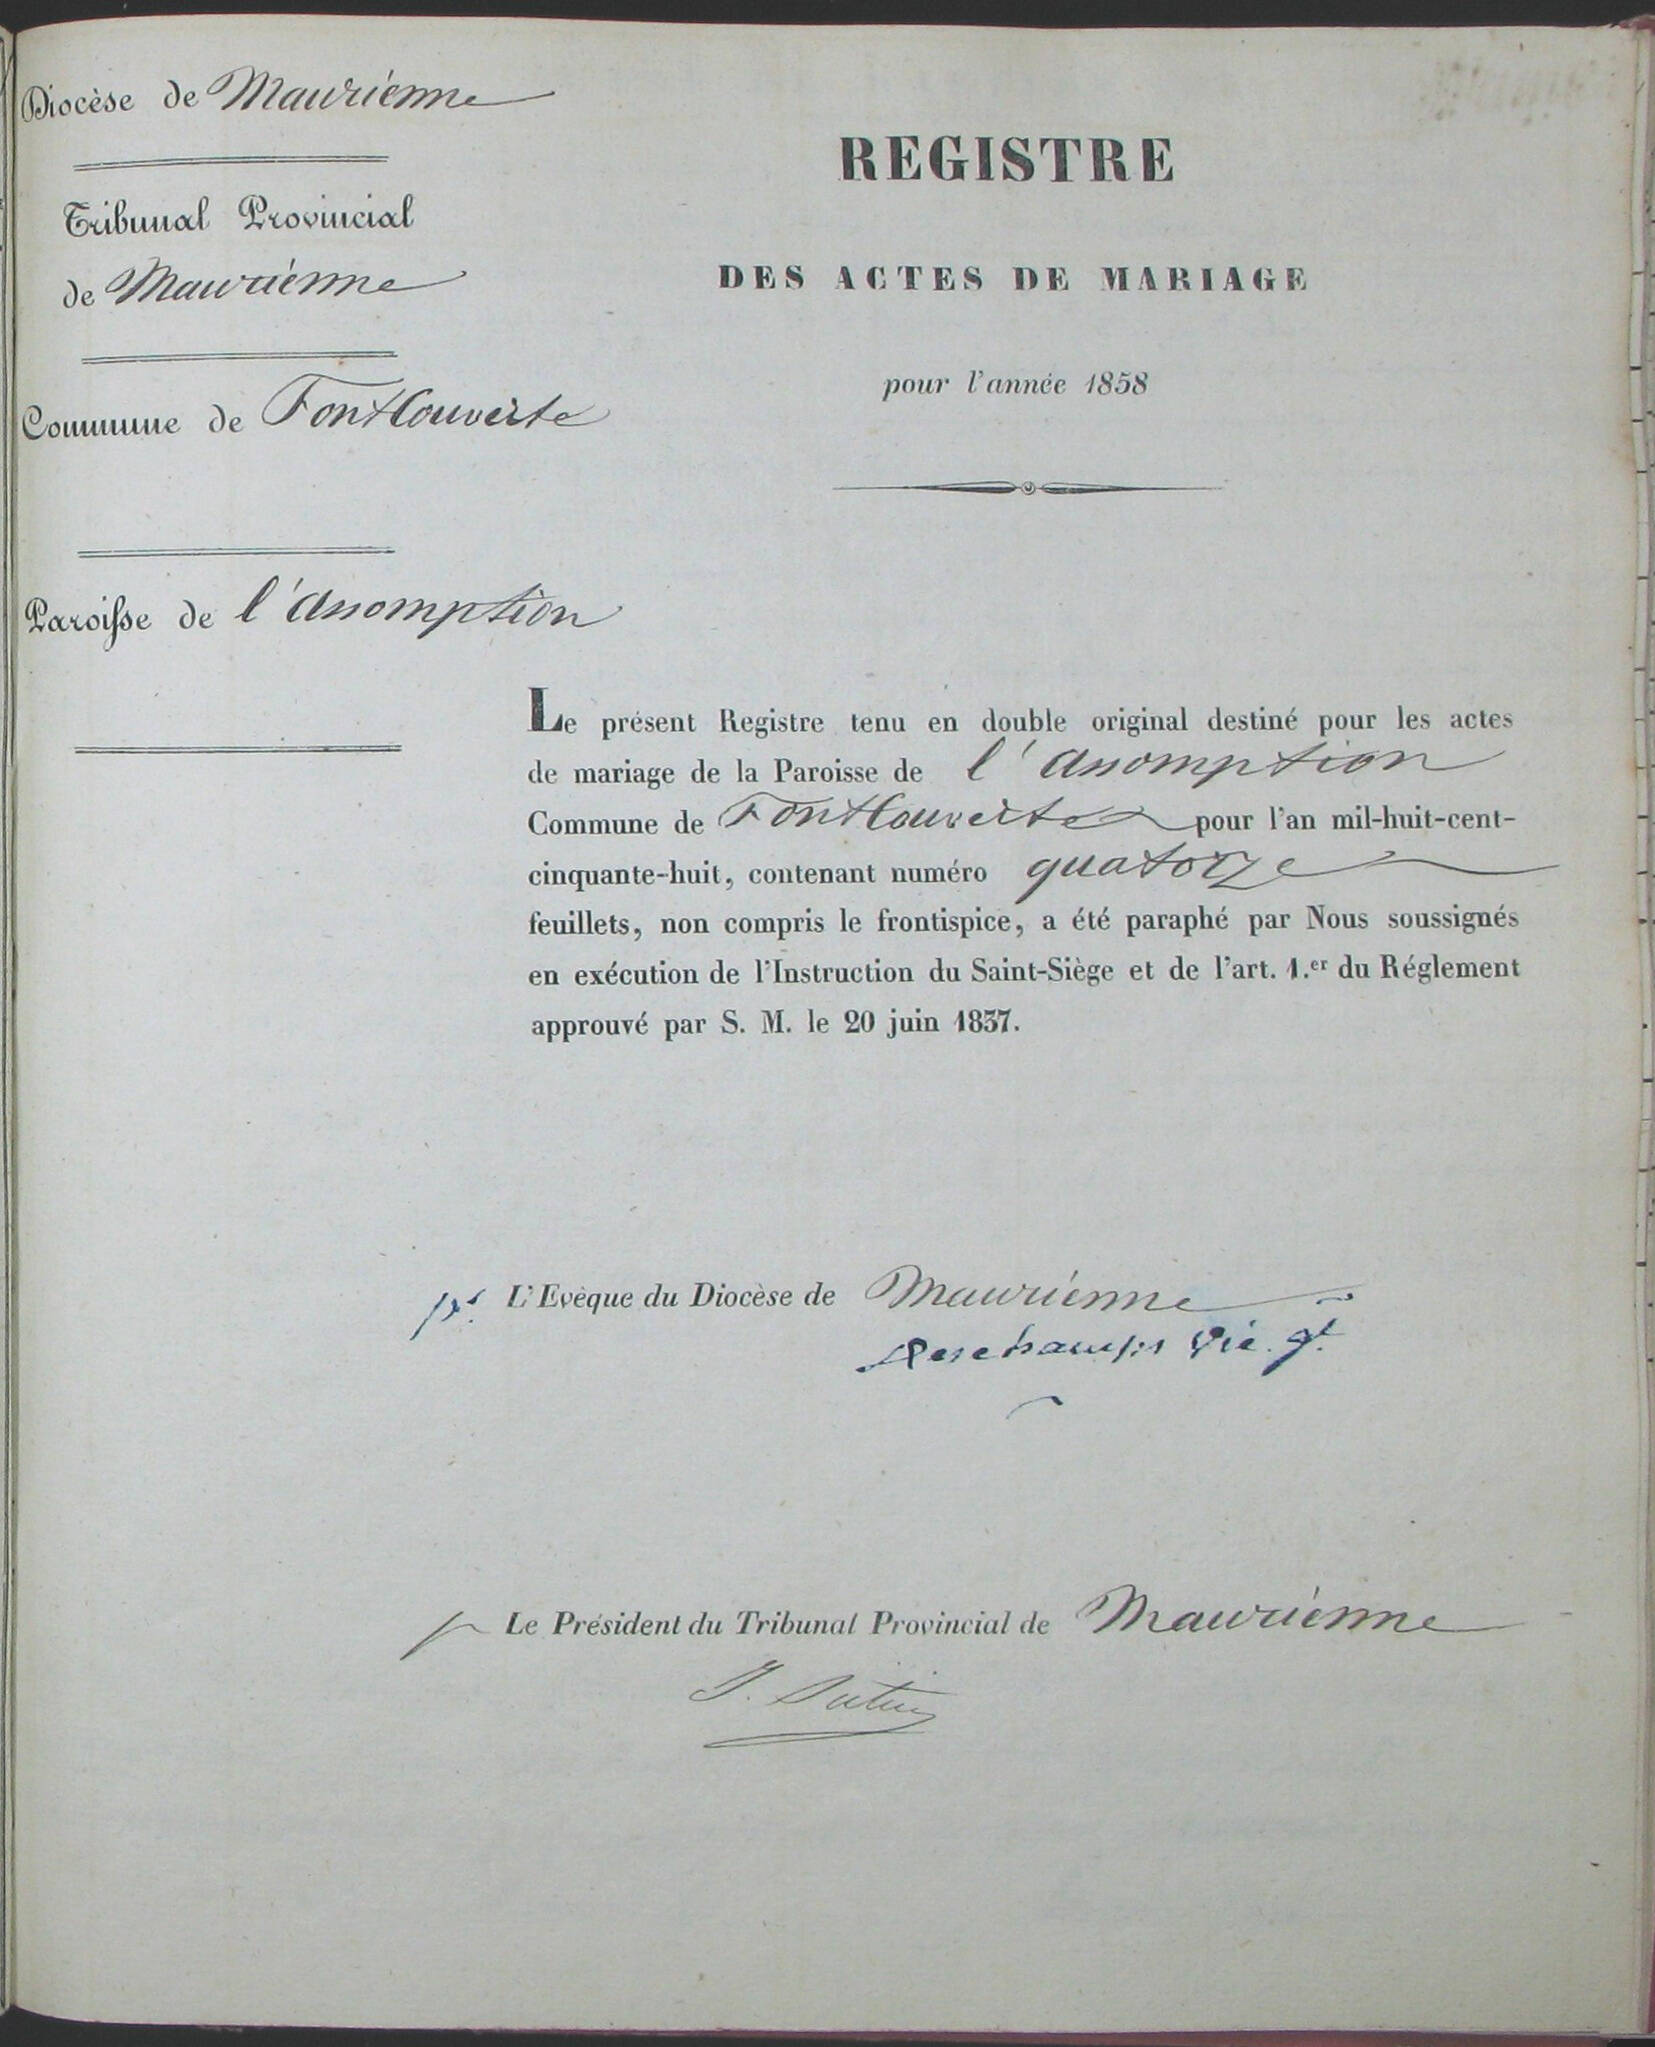 Diocèse de Maurienne
Tribunal Provincial
de Maurienne
Commune de FontCouverte
Paroisse de l'assomption
REGISTRE
DES ACTES DE MARIAGE
pour l'année 1858
Le présent Registre tenu en double original destiné pour les actes
de mariage de la Paroisse de l'assomption
Commune de FontCouverte pour l'an mil-huit-cent-
cinquante-huit, contenant numéro quatorze
feuillets, non compris le frontispice, a été paraphé par Nous soussignés
en exécution de l'Instruction du Saint-Siège et de l'art. 1.er du Réglement
approuvé par S. M. le 20 juin 1837.
pr. L'Evêque du Diocèse de Maurienne
Deschamps Vic. gl.
p Le Président du Tribunal Provincial de Maurienne
J.